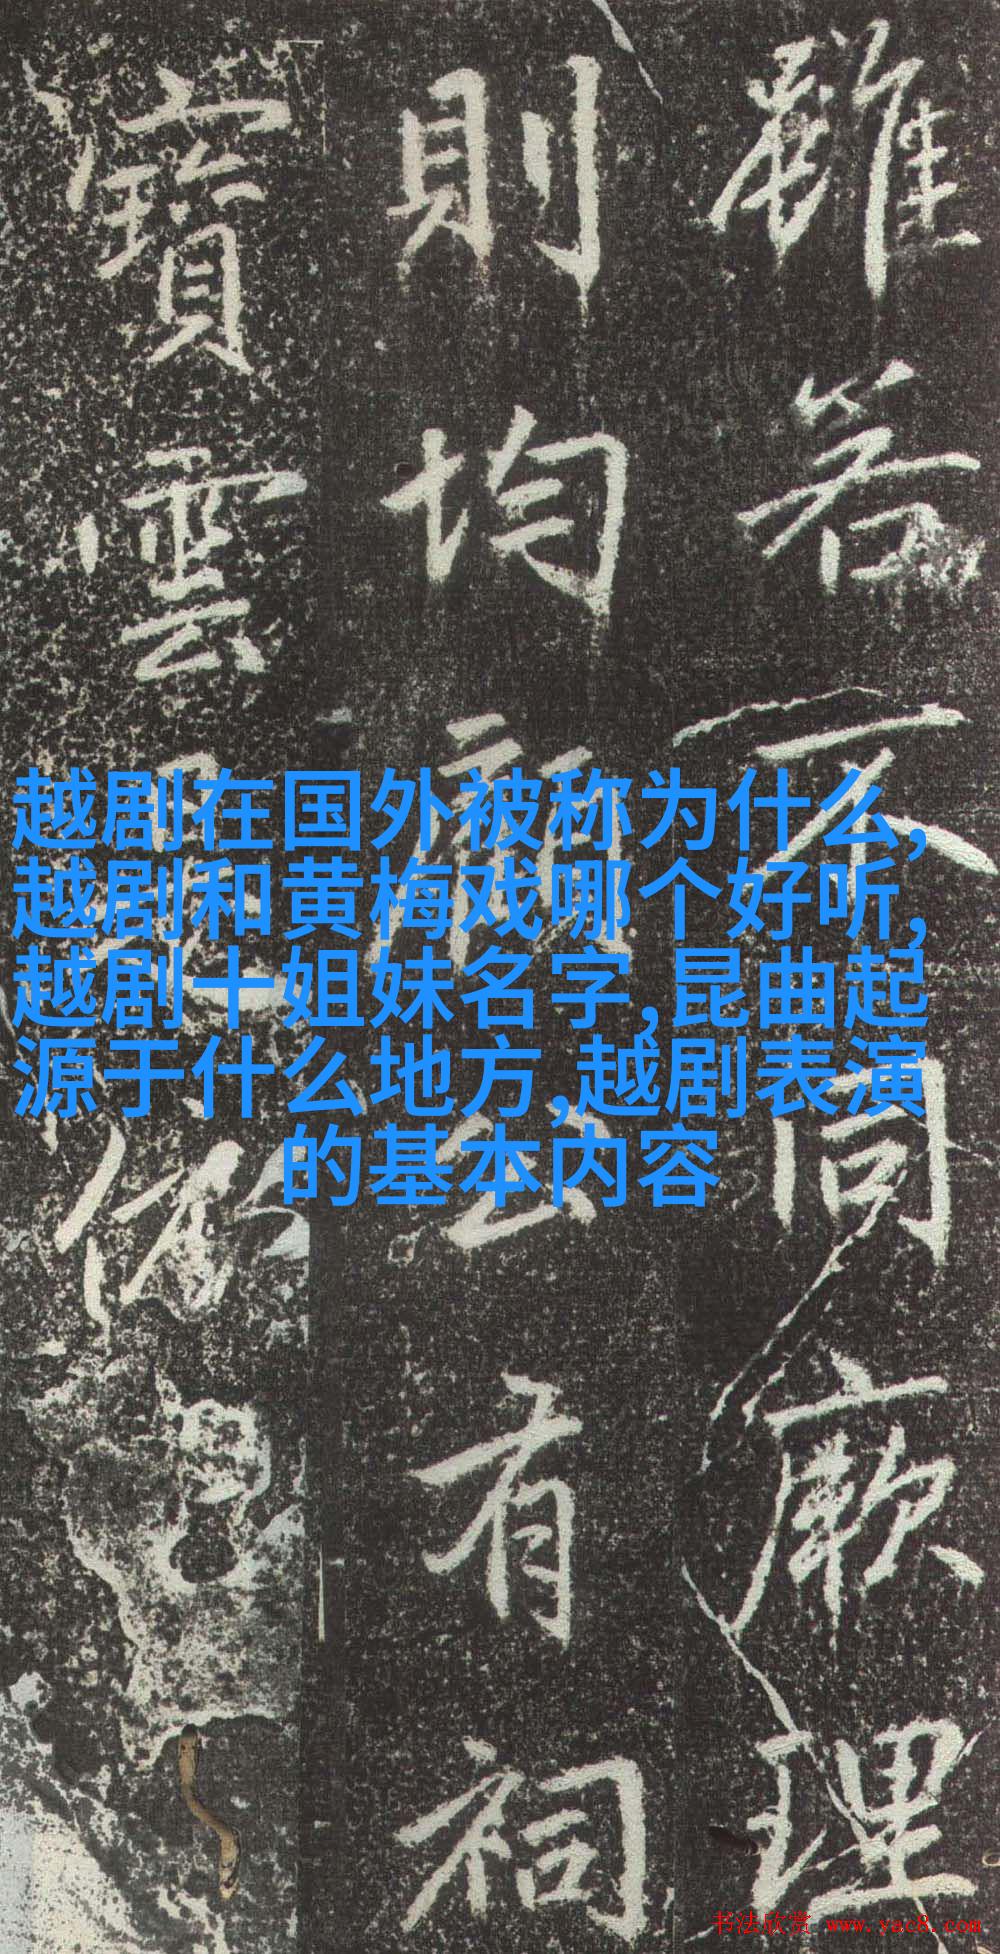 雖若不同厥理
則均有祠
寶雲
越剧在国外被称为什么,
越剧和黄梅戏哪个好听,
越剧十姐妹名字,昆曲起
源于什么地方,越剧表演
的基本内容
书法欣赏 www.yac8.com